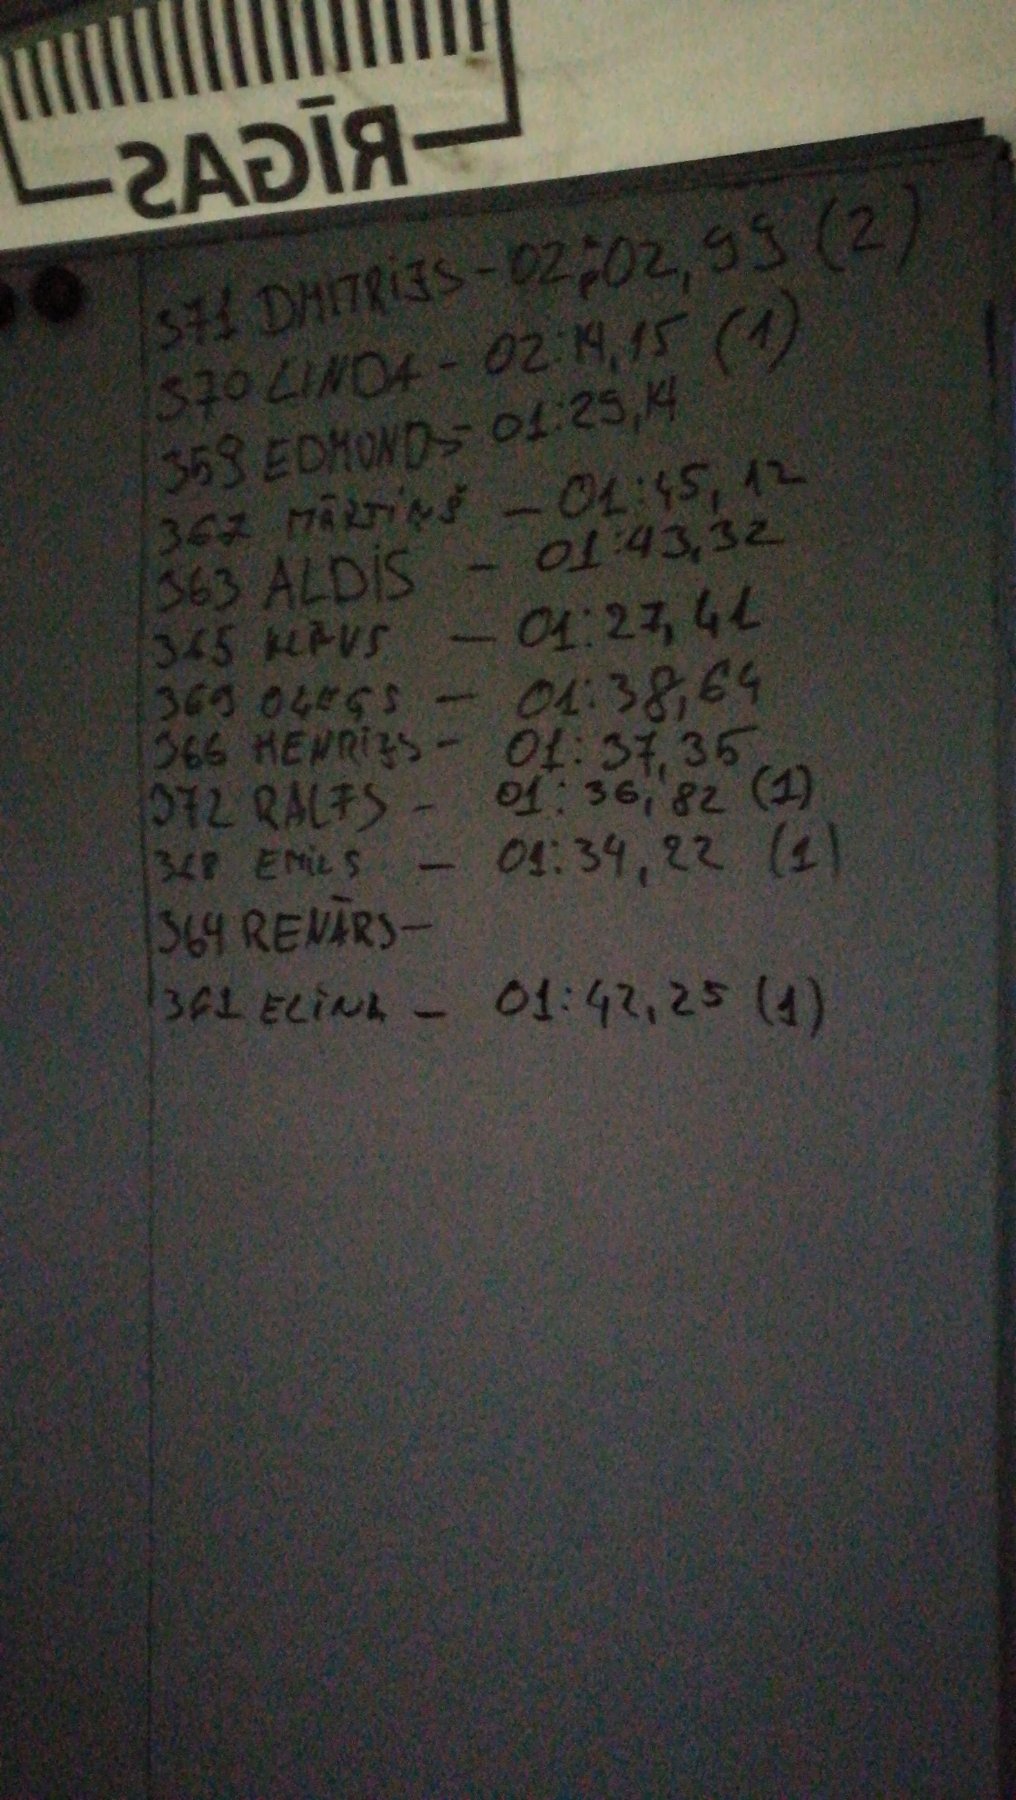 RĪGAS
371 DMITRIJS - 02:02,99 (2)
370 LINDA - 02:14,15 (1)
359 EDMONDS - 01:29,14
367 MĀRTIŅŠ - 01:45,12
363 ALDIS - 01:43,32
365 KLĀVS - 01:27,41
369 OĻEGS - 01:38,64
366 HENRIJS - 01:37,35
372 RALFS - 01:36,82 (1)
368 EMILS - 01:34,22 (1)
364 RENĀRS -
361 ELINA - 01:42,25 (1)